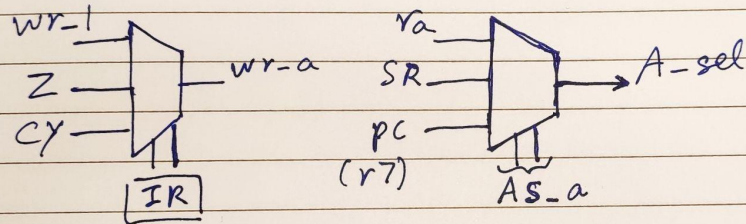 wr_1
Z
CY
wr_a
IR
ra
SR
PC
(r7)
A_sel
AS_a